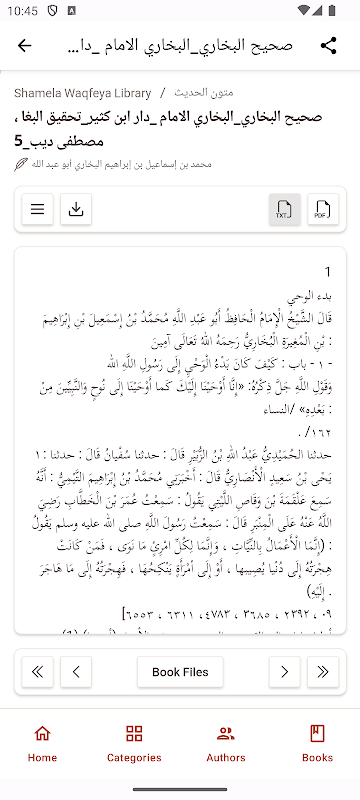 10:45
صحيح البخاري_البخاري الامام _دا...
Shamela Waqfeya Library / متون الحديث
صحيح البخاري_البخاري الامام _دار ابن كثير_تحقيق البغا ،
مصطفى ديب_5
محمد بن إسماعيل بن إبراهيم البخاري أبو عبد الله
TXT
PDF
1
بدء الوحي
قَالَ الشَّيْخُ الْإِمَامُ الْحَافِظُ أَبُو عَبْدِ اللَّهِ مُحَمَّدُ بْنُ إِسْمَعِيلَ بْنِ إِبْرَاهِيمَ
بْنِ الْمُغِيرَةِ الْبُخَارِيُّ رَحِمَهُ اللَّهُ تَعَالَى آمِينَ :
- ١ - باب : كَيْفَ كَانَ بَدْءُ الْوَحْيِ إِلَى رَسُولِ اللَّهِ الله
وَقَوْلِ اللَّهِ جَلَّ ذِكْرُهُ: «إِنَّا أَوْحَيْنَا إِلَيْكَ كَما أَوْحَيْنَا إِلَى نُوحٍ وَالنَّبِيِّينَ مِنْ
بَعْدِهِ» /النساء :
١٦٢/ .
حدثنا الحُمَيْدِيُّ عَبْدُ اللَّهِ بْنُ الزُّبَيْرِ قَالَ : حدثنا سُفْيَانُ قَالَ : حدثنا : ١
يَحْيَى بْنُ سَعِيدٍ الْأَنْصَارِيُّ قَالَ : أَخْبَرَنِي مُحَمَّدُ بْنُ إِبْرَاهِيمَ التَّيْمِيُّ : أَنَّهُ
سَمِعَ عَلْقَمَةَ بْنَ وَقَّاصٍ اللَّيْثِي يَقُولُ : سَمِعْتُ عُمَرَ بْنَ الْخَطَّابِ رَضِيَ
اللَّهُ عَنْهُ عَلَى الْمِنْبَرِ قَالَ : سَمِعْتُ رَسُولَ اللَّهِ صلى الله عليه وسلم يَقُولُ
: (إِنَّمَا الْأَعْمَالُ بِالنِّيَّاتِ ، وَإِنَّمَا لِكُلِّ امْرِئٍ مَا نَوَى ، فَمَنْ كَانَتْ
هِجْرَتُهُ إِلَى دُنْيَا يُصِيبها ، أَوْ إِلَى امْرَأَةٍ يَنْكِحُهَا ، فَهِجْرَتُهُ إِلَى مَا هَاجَرَ
إِلَيْهِ) .
٠٩ ، ٢٣٩٢ ، ٣٦٨٥ ، ٤٧٨٣، ٦٣١١ ، ٦٥٥٣]
Book Files
Home
Categories
Authors
Books